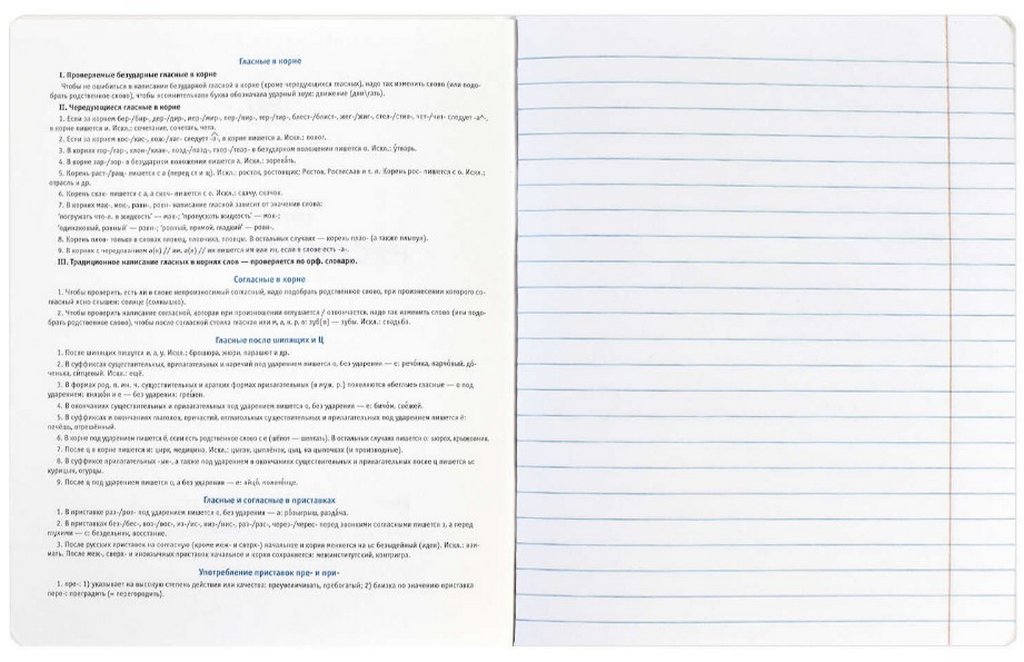 Гласные в корне
I. Проверяемые безударные гласные в корне
Чтобы не ошибиться в написании безударной гласной в корне (кроме чередующихся гласных), надо так изменить слово (или подо-
брать родственное слово), чтобы «сомнительная» буква обозначала ударный звук: движение (двигать).
II. Чередующиеся гласные в корне
1. Если за корнем бер-/бир-, дер-/дир-, мер-/мир-, пер-/пир-, тер-/тир-, блест-/блист-, жег-/жиг-, стел-/стил-, чет-/чит- следует -а^-,
в корне пишется и. Искл.: сочетание, сочетать, чета.
2. Если за корнем кос-/кас-, лож-/лаг- следует -а-, в корне пишется а. Искл.: полог.
3. В корнях гор-/гар-, клон-/клан-, твор-/твар- в безударном положении пишется о. Искл.: у́тварь.
4. В корне зар-/зор- в безударном положении пишется а. Искл.: зорева́ть.
5. Корень раст-/ращ- пишется с а (перед ст и щ). Искл.: росток, ростовщик; Ростов, Ростислав и т. п. Корень рос- пишется с о. Искл.:
отрасль и др.
6. Корень скак- пишется с а, а скоч- пишется с о. Искл.: скачу, скачок.
7. В корнях мак-, мок-, равн-, ровн- написание гласной зависит от значения слова:
'погружать что-л. в жидкость' — мак-; 'пропускать жидкость' — мок-;
'одинаковый, равный' — равн-; 'ровный, прямой, гладкий' — ровн-.
8. Корень плов- только в словах пловец, пловчиха, пловцы. В остальных случаях — корень плав- (а также плывун).
9. В корнях с чередованием а(я) // им, а(я) // ин пишется им или ин, если в слове есть -а-.
III. Традиционное написание гласных в корнях слов — проверяется по орф. словарю.
Согласные в корне
1. Чтобы проверить, есть ли в слове непроизносимый согласный, надо подобрать родственное слово, при произнесении которого со-
гласный ясно слышен: солнце (солнышко).
2. Чтобы проверить написание согласной, которая при произношении оглушается / озвончается, надо так изменить слово (или подо-
брать родственное слово), чтобы после согласной стояла гласная или м, л, н, р, в: зуб[п] — зубы. Искл.: свадьба.
Гласные после шипящих и Ц
1. После шипящих пишутся и, а, у. Искл.: брошюра, жюри, парашют и др.
2. В суффиксах существительных, прилагательных и наречий под ударением пишется о, без ударения — е: речо́нка, парчо́вый, до́-
ченька, си́тцевый. Искл.: ещё.
3. В формах род. п. мн. ч. существительных и кратких формах прилагательных (в муж. р.) появляются «беглые» гласные — о под
ударением: княжо́н и е — без ударения: гре́шен.
4. В окончаниях существительных и прилагательных под ударением пишется о, без ударения — е: бичо́м, све́жей.
5. В суффиксах и окончаниях глаголов, причастий, отглагольных существительных и прилагательных под ударением пишется ё:
печёшь, отрешённый.
6. В корне под ударением пишется ё, если есть родственное слово с е (шёпот — шептать). В остальных случаях пишется о: шорох, крыжовник.
7. После ц в корне пишется и: цирк, медицина. Искл.: цыган, цыплёнок, цыц, на цыпочках (и производные).
8. В суффиксе прилагательных -ын-, а также под ударением в окончаниях существительных и прилагательных после ц пишется ы:
курицын, огурцы.
9. После ц под ударением пишется о, а без ударения — е: яйцо́, полоте́нце.
Гласные и согласные в приставках
1. В приставке раз-/роз- под ударением пишется о, без ударения — а: ро́зыгрыш, разда́ча.
2. В приставках без-/бес-, воз-/вос-, из-/ис-, низ-/нис-, раз-/рас-, через-/черес- перед звонкими согласными пишется з, а перед
глухими — с: бездельник, восстание.
3. После русских приставок на согласную (кроме меж- и сверх-) начальное и корня меняется на ы: безыдейный (идея). Искл.: взи-
мать. После меж-, сверх- и иноязычных приставок начальное и корня сохраняется: межинститутский, контригра.
Употребление приставок пре- и при-
1. пре-: 1) указывает на высокую степень действия или качества: преувеличивать, пребогатый; 2) близка по значению приставка
пере-: преградить (= перегородить).